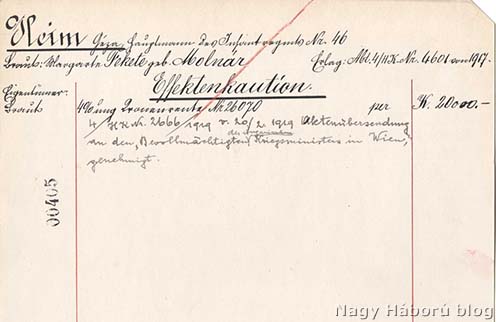 Heim Géza, Hauptmann des Infant regmts Nr. 46
Braut: Margarte Fekete geb. Molnár Erlag: Abt. 4/H.K. Nr. 4601 von 1917.
Effektenkaution.
Eigentümer:
Braut 4% ung Kronenrente Nr 26070 per K. 20000.-
4/H.K. Nr. 2666/1919 v. 20/2. 1919 Aktenübersendung
des ungarischen
an den „Bevollmächtigten Kriegsministers in Wien,"
genehmigt.
00405
Nagy Háború blog